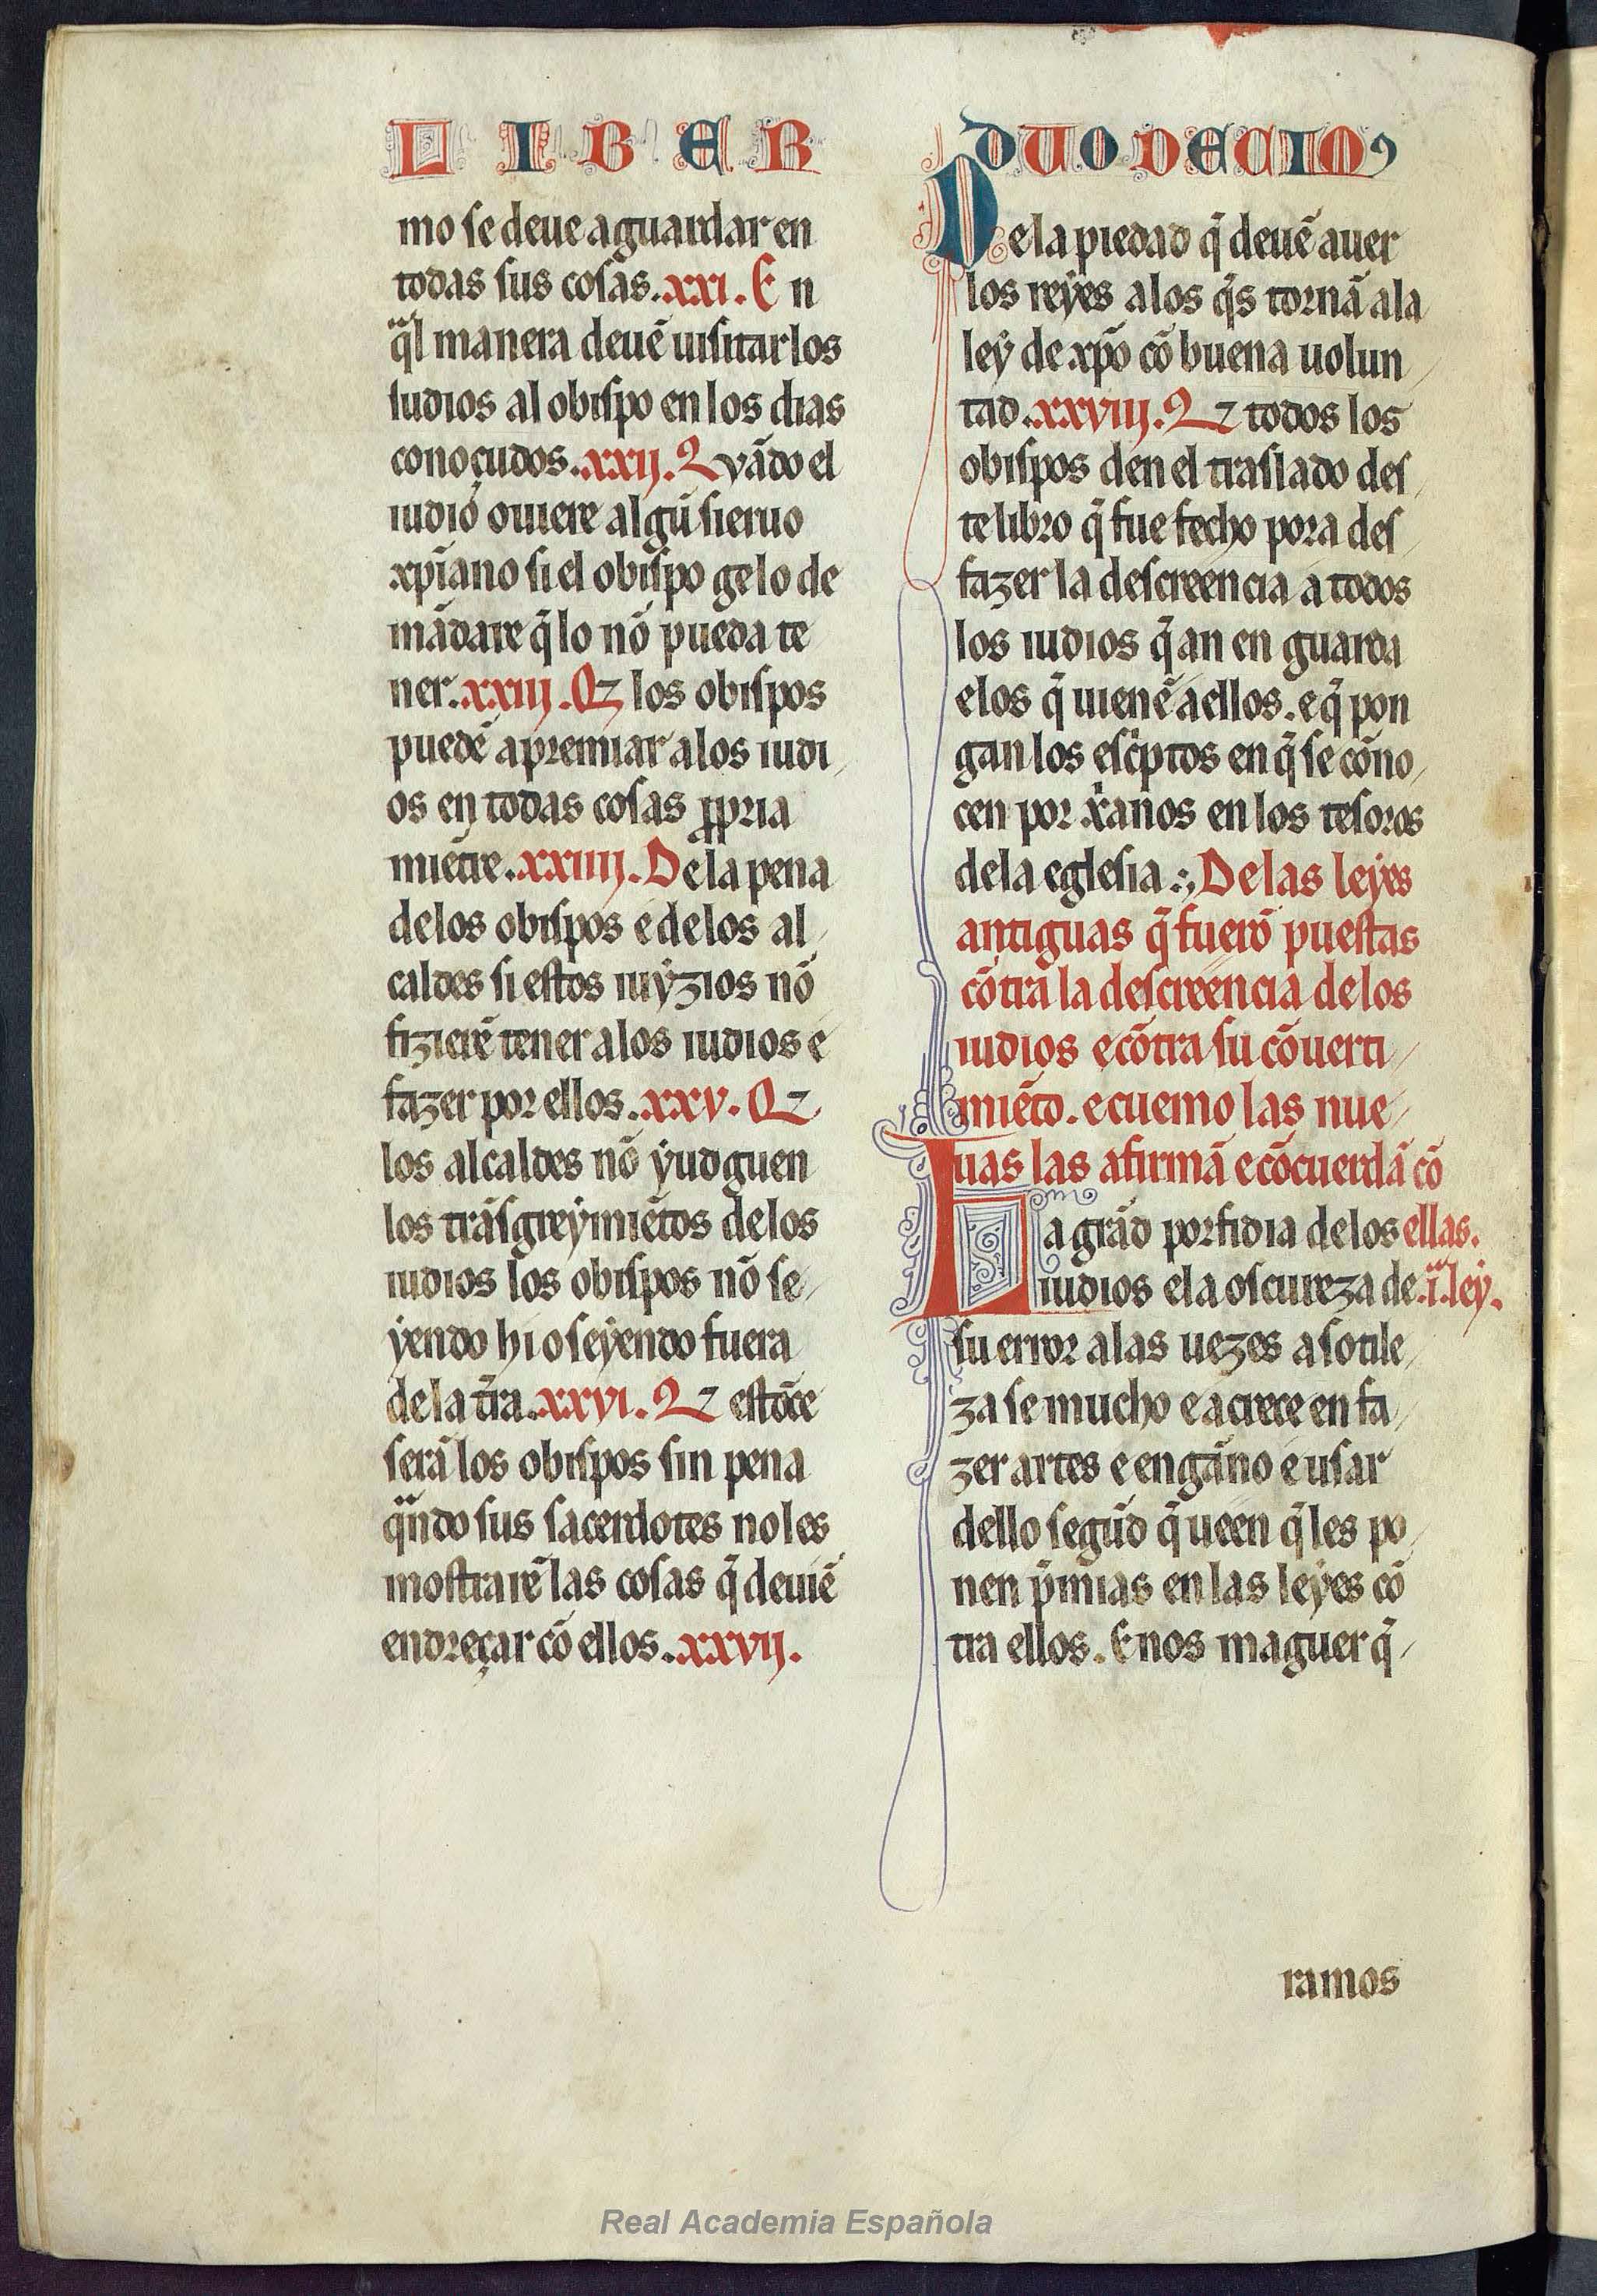 LIBER
mo se deue aguardar en
todas sus cosas. xxi. En
q̃l manera deuẽ uisitar los
iudios al obispo en los dias
conoçudos. xxij. Qvãdo el
iudió ouiere algũ sieruo
xp̃iano si el obispo gelo de
mãdare q̃ lo nõ pueda te
ner. xxiij. Q̃ los obispos
puedẽ apremiar alos iudi
os en todas cosas ꝓpria
miẽtre. xxiiij. Dela pena
delos obispos e delos al
caldes si estos iuẏzios nõ
fizierẽ tener alos iudios e
fazer por ellos. xxv. Q̃
los alcaldes nõ ẏudguen
los trãsgreẏmiẽtos delos
iudios los obispos nõ se
ẏendo hi o seẏendo fuera
dela tr̃a. xxvi. Q̃ estõce
serã los obispos sin pena
qͣndo sus sacerdotes no les
mostrarẽ las cosas q̃ deuiẽ
endreçar cõ ellos. xxvij.
DUODECIMꝰ
Dela piedad q̃ deuẽ auer
los reẏes alos q̃s tornã ala
leẏ de xp̃o cõ buena uolun
tad. xxviij. Q̃ todos los
obispos den el traslado des
te libro q̃ fue fecho pora des
fazer la descreencia a todos
los iudios q̃ an en guarda
e los q̃ uienẽ a ellos. e q̃ pon
gan los esc̃ptos en q̃ se cõno
cen por x̃anos en los tesoros
dela eglesia :; Delas leẏes
antiguas q̃ fuerõ puestas
cõtra la descreencia delos
iudios e cõtra su cõuerti
miẽto. e cuemo las nue
uas las afirmã e cõcuerdã cõ
La grãd porfidia delos ellas.
iudios e la oscureza de .iͣ. leẏ.
su error alas uezes asotile
za se mucho e acrece en fa
zer artes e engãno e usar
dello segũd q̃ ueen q̃ les po
nen p̃mias en las leẏes cõ
tra ellos. E nos maguer q̃
ramos
Real Academia Española